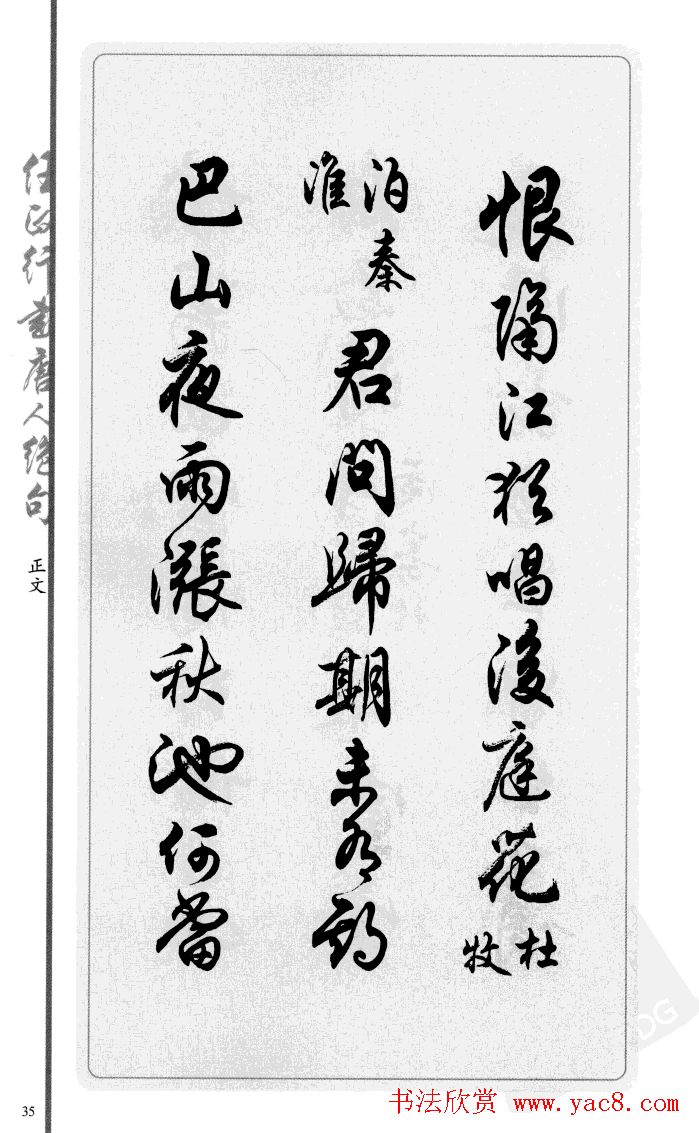 恨隔江猶唱後庭花
杜牧
泊秦淮
君問歸期未有期
巴山夜雨漲秋池何當
任政行書唐人絕句
正文
35
书法欣赏 www.yac8.com
DG